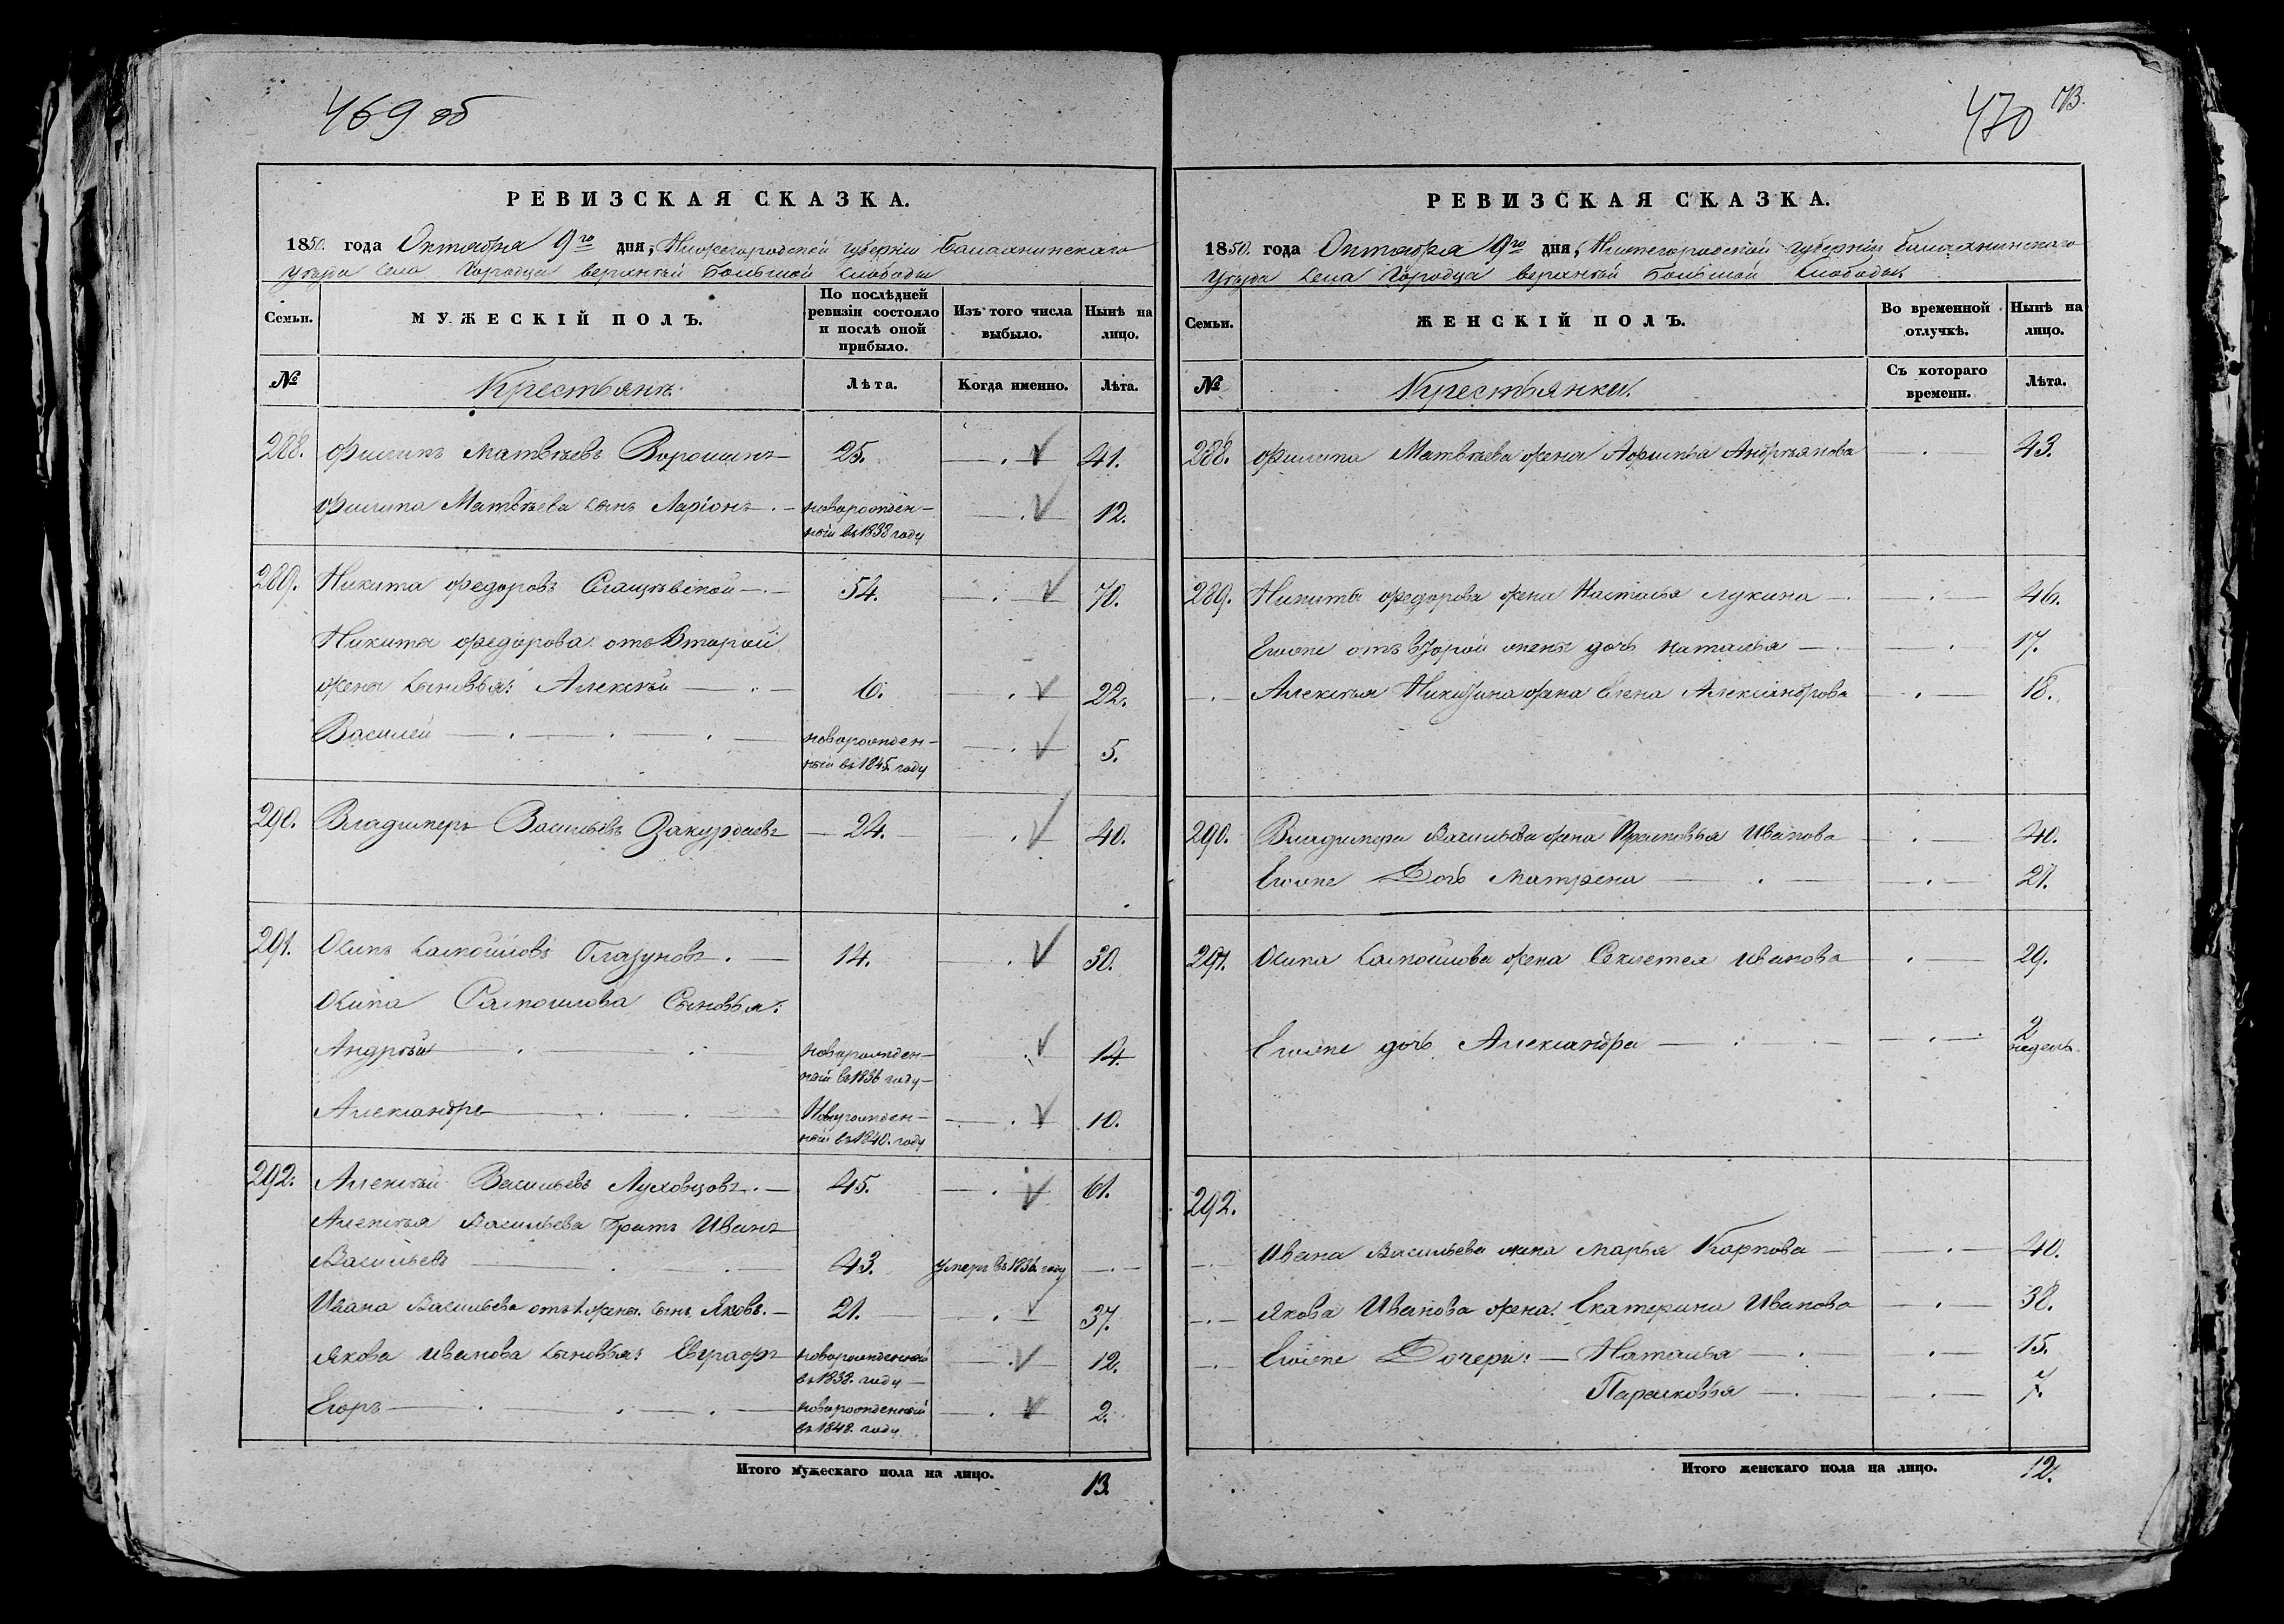 469 об
РЕВИЗСКАЯ СКАЗКА.
1850. года Октября 9го дня, Нижегородской губернии Балахнинскаго
уѣзда села Городца верхнѣй Большой слободы
Семьи. МУЖЕСКІЙ ПОЛЪ. По послѣдней ревизіи состояло и послѣ оной прибыло. Изъ того числа выбыло. Нынѣ на лицо.
№ Крестьянъ. Лѣта. Когда именно. Лѣта.
288. Филипъ Матвѣевъ Ворошинъ 25. 41.
Филипа Матвѣева сынъ Ларіонъ новорожден-
ный въ 1838 году 12.
289. Никита Федоровъ 54. 70.
Никиты Федорова отъ Второй
жены сыновья: Алексѣй 6. 22.
Василей новорожден-
ный въ 1845 году 5.
290. Владимеръ Васильевъ Закурдаевъ 24. 40.
291. Осипъ Самойловъ Глазуновъ 14. 30.
Осипа Самойлова Сыновья:
Андрѣй новорожден-
ный въ 1836 году 14.
Александръ Новорожден-
ный въ 1840. году 10.
292. Алексѣй Васильевъ Луховцовъ 45. 61.
Алексѣя Васильева братъ Иванъ
Васильевъ 43. Умеръ въ 1836 году
Ивана Васильева отъ 1. жены сынъ Яковъ. 21. 37.
Якова Иванова сыновья: Евграфъ новорожденный
въ 1838. году 12.
Егоръ новорожденный
въ 1848. году 2.
Итого мужескаго пола на лицо. 13.
470 173.
РЕВИЗСКАЯ СКАЗКА.
1850. года Октября 9го дня, Нижегородской губерніи Балахнинскаго
уѣзда села Городца верхнѣй Большой слободы
Семьи. ЖЕНСКІЙ ПОЛЪ. Во временной отлучкѣ. Нынѣ на лицо.
№ Крестьянки. Съ котораго времени. Лѣта.
288. Филипа Матвѣева жена Афимья Андреянова 43.
289. Никиты Федорова жена Настасья Лукина 46.
Егоже отъ Второй жены дочь Наталья 17.
Алексѣя Никитина жена Елена Александрова 18.
290. Владимера Васильева жена Прасковья Иванова 40.
Егоже Дочь Матрена 21.
291. Осипа Самойлова жена Секлетея Иванова 29.
Егоже дочь Александра 2
недель.
292.
Ивана Васильева жена Марья Карпова 40.
Якова Иванова жена Екатерина Иванова 38.
Егоже Дочери: Наталья 15.
Парасковья 7.
Итого женскаго пола на лицо. 12.